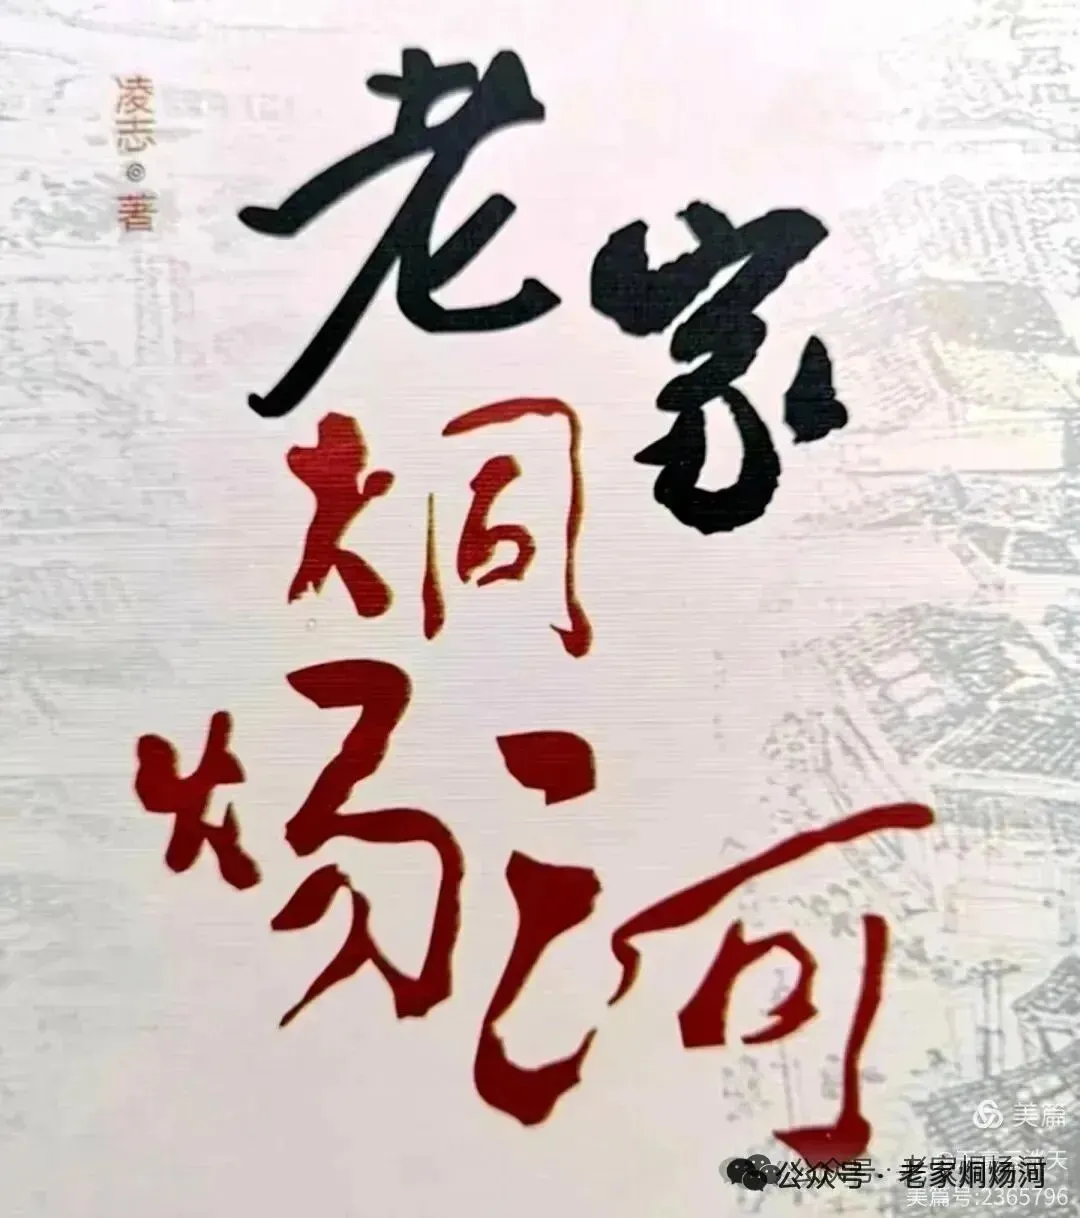 凌志·著
老家
炯
炀河
美篇
公众号·老家烔炀河
美篇号:2365796